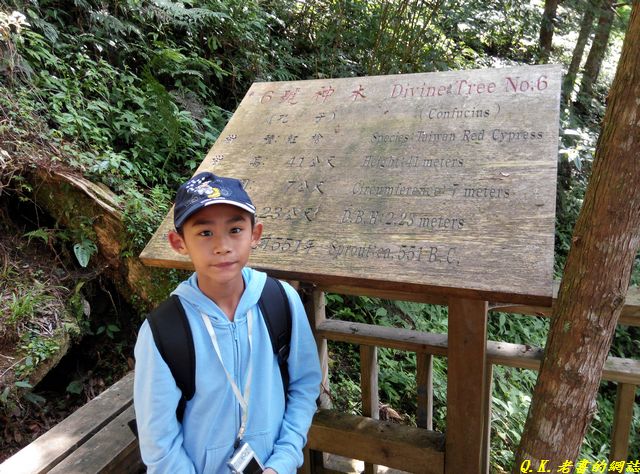 6號神木 Divine Tree No.6
(孔子) (Confucius)
樹種:紅檜 Species:Taiwan Red Cypress
樹高:41公尺 Height:41 meters
7公尺 Circumference:7 meters
.23公尺 D.B.H:2.23 meters
前551年 Sprout:ca.551 B.C.
Q.K.老書的網誌